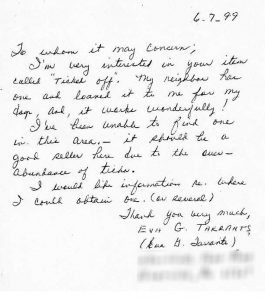 6-7-99
To whom it may concern;
I'm very interested in your item
called "Ticked off". My neighbor has
one and loaned it to me for my
dog, and, it works wonderfully!
I've been unable to find one
in this area, – it should be a
good seller here due to the over-
abundance of ticks.
I would like information re. where
I could obtain one. (or several)
Thank you very much,
Eva G. Tarrants
(Eva G. Tarrants)